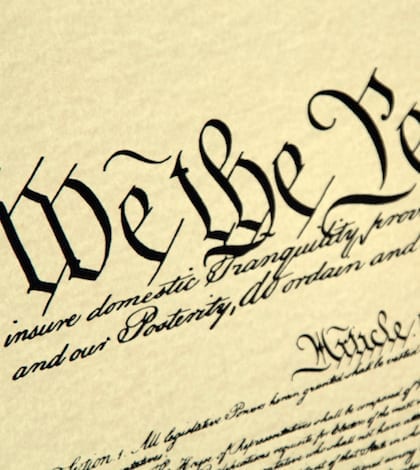 We the Pe
insure domestic Tranquility, prov
and our Posterity, do ordain and
Article
Section. 1. All legislative Powers herein granted shall be vested
House of Representatives shall be composed of